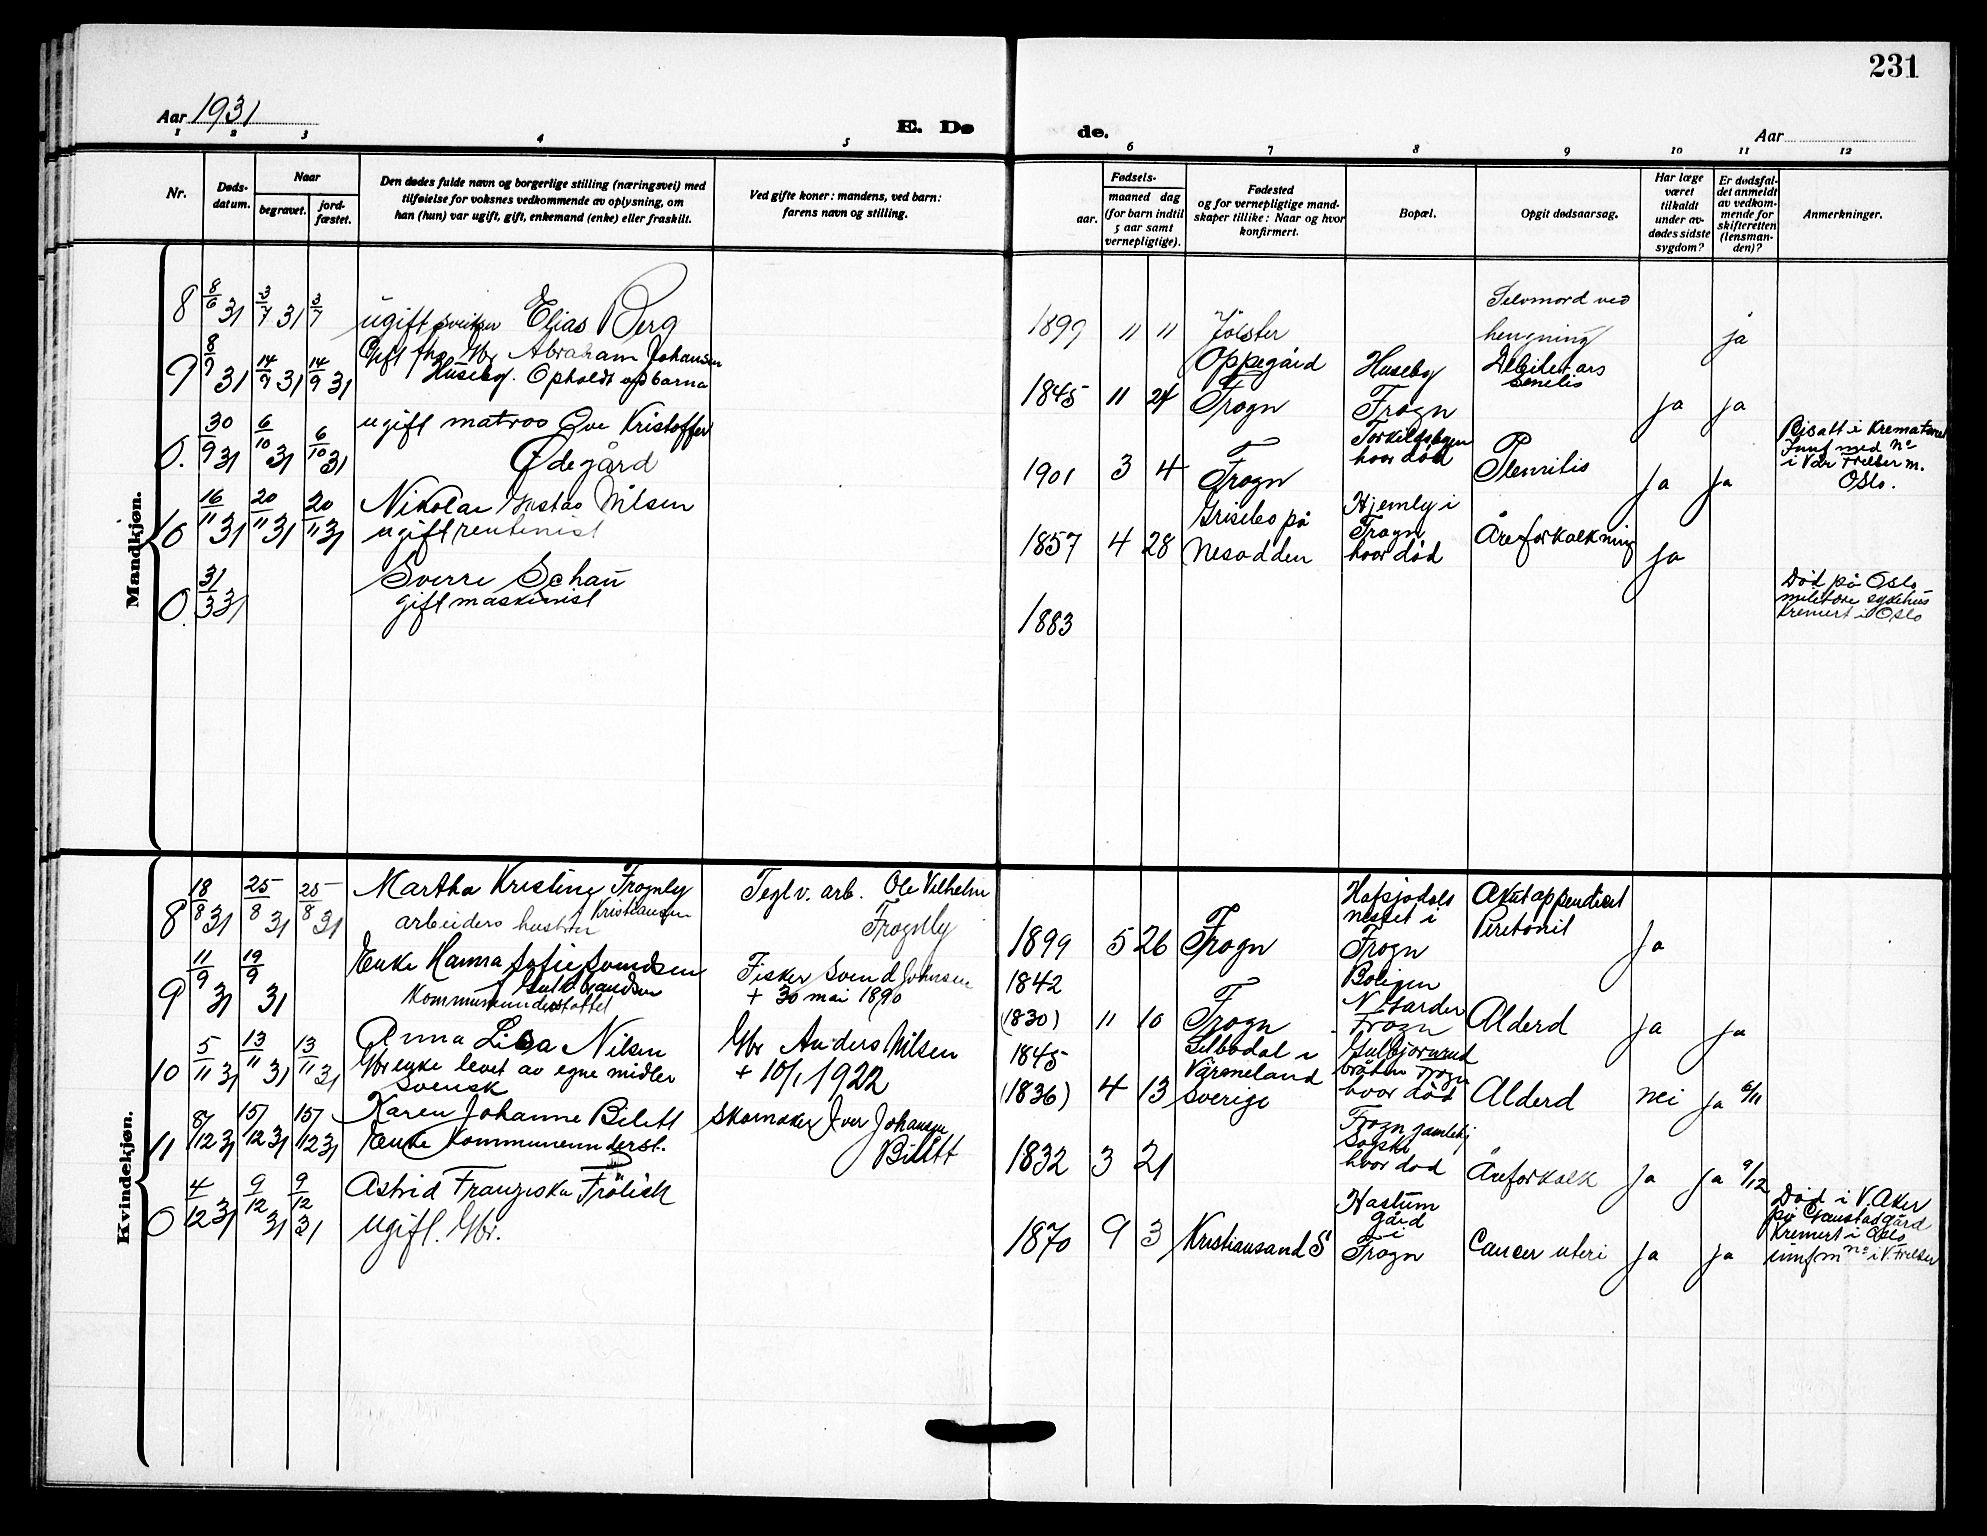 231
Aar 1931
E. Dø de.
Aar
1 2 3 4 5 6 7 8 9 10 11 12
Nr.
Døds-
datum.
Naar
begravet.
jord-
fæstet.
Den dødes fulde navn og borgerlige stilling (næringsvei) med
tilføielse for voksnes vedkommende av oplysning, om
han (hun) var ugift, gift, enkemand (enke) eller fraskilt.
Ved gifte koner: mandens, ved barn:
farens navn og stilling.
Fødsels-
aar.
maaned dag
(for barn indtil
5 aar samt
vernepligtige).
Fødested
og for vernepligtige mand-
skaper tillike: Naar og hvor
konfirmert.
Bopæl.
Opgit dødsaarsag.
Har læge
været
tilkaldt
under av-
dødes sidste
sygdom?
Er dødsfal-
det anmeldt
av vedkom-
mende for
skifteretten
(lensman-
den)?
Anmerkninger.
Mandkjøn.
8 8/6 31 3/7 31 3/7 ugift sveitser Elias Berg
1899 " " Jölster
Selvmord ved
hengning
ja
9 8/9 31 14/9 31 14/9 31 Gift fhv. Gbr. Abraham Johansen
Huseby. Opholdt av barna
1845 11 24 Oppegård
Frogn
Huseby
Frogn
senilis
ja ja
0. 30/9 31 6/10 31 6/10 31 ugift matros Ove Kristoffer
Ödegård
1901 3 4 Frogn
hvor död
ja ja
Bisatt i Krematoriet
i Vår Frelser m.
Oslo.
10 16/11 31 20/11 31 20/11 31 Nikolai Gustav Nilsen
ugift rentenist
1857 4 28 Grisebo på
Nesodden
Hjemly i
Frogn
hvor död
Åreforkalkning
ja
0. 31/3 31 Sverre Schau
gift maskinist
1883
Död på Oslo
militære sykehus
Kremert i Oslo
Kvindekjøn.
8 18/8 31 25/8 31 25/8 31 Martha Kristine Frognly
Kristiansen
arbeiders hustru
Teglv. arb. Ole Vilhelm
Frognly
1899 5 26 Frogn
nesset i
Frogn
Akut appendicit
Peretonit
ja
9 11/9 31 19/9 31 Enke Hanna Sofie Svendsen
Kommuneunderstöttet
Fisker Svend Johnsen
+ 30 mai 1890
1842
(1830) 11 10 Frogn
Boligen
N. Garder
Frogn
Alderd
ja ja
10 5/11 31 13/11 31 13/11 31 Anna Lisa Nilsen
Gbr enke levet av egne midler
Svensk
Gbr Anders Nilsen
+ 10/1 1922
1845
(1836) 4 13 Silbodal i
Värmeland
Sverige
bråten Frogn
hvor död
Alderd
nei ja 6/11
11 8/12 31 15/12 31 15/12 31 Karen Johanne Bilett
Enke kommuneunderst.
Skomaker Iver Johansen
Bilett
1832 3 21
Frogn gamlehj
hvor död
Åreforkalk
ja ja 9/12
0 4/12 31 9/12 31 9/12 31 Astrid Franziska Frölich
ugift. Gbr.
1870 9 3 Kristiansand S
Hastum
gård
i
Frogn
Cancer uteri
ja ja
Död i V. Aker
på Gaustadgård
Kremert i Oslo
innf m nº i V. Frelser